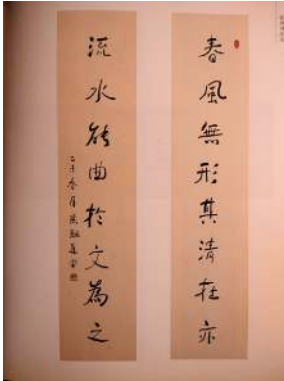 春風無形其清在亦
流水能曲於文為之